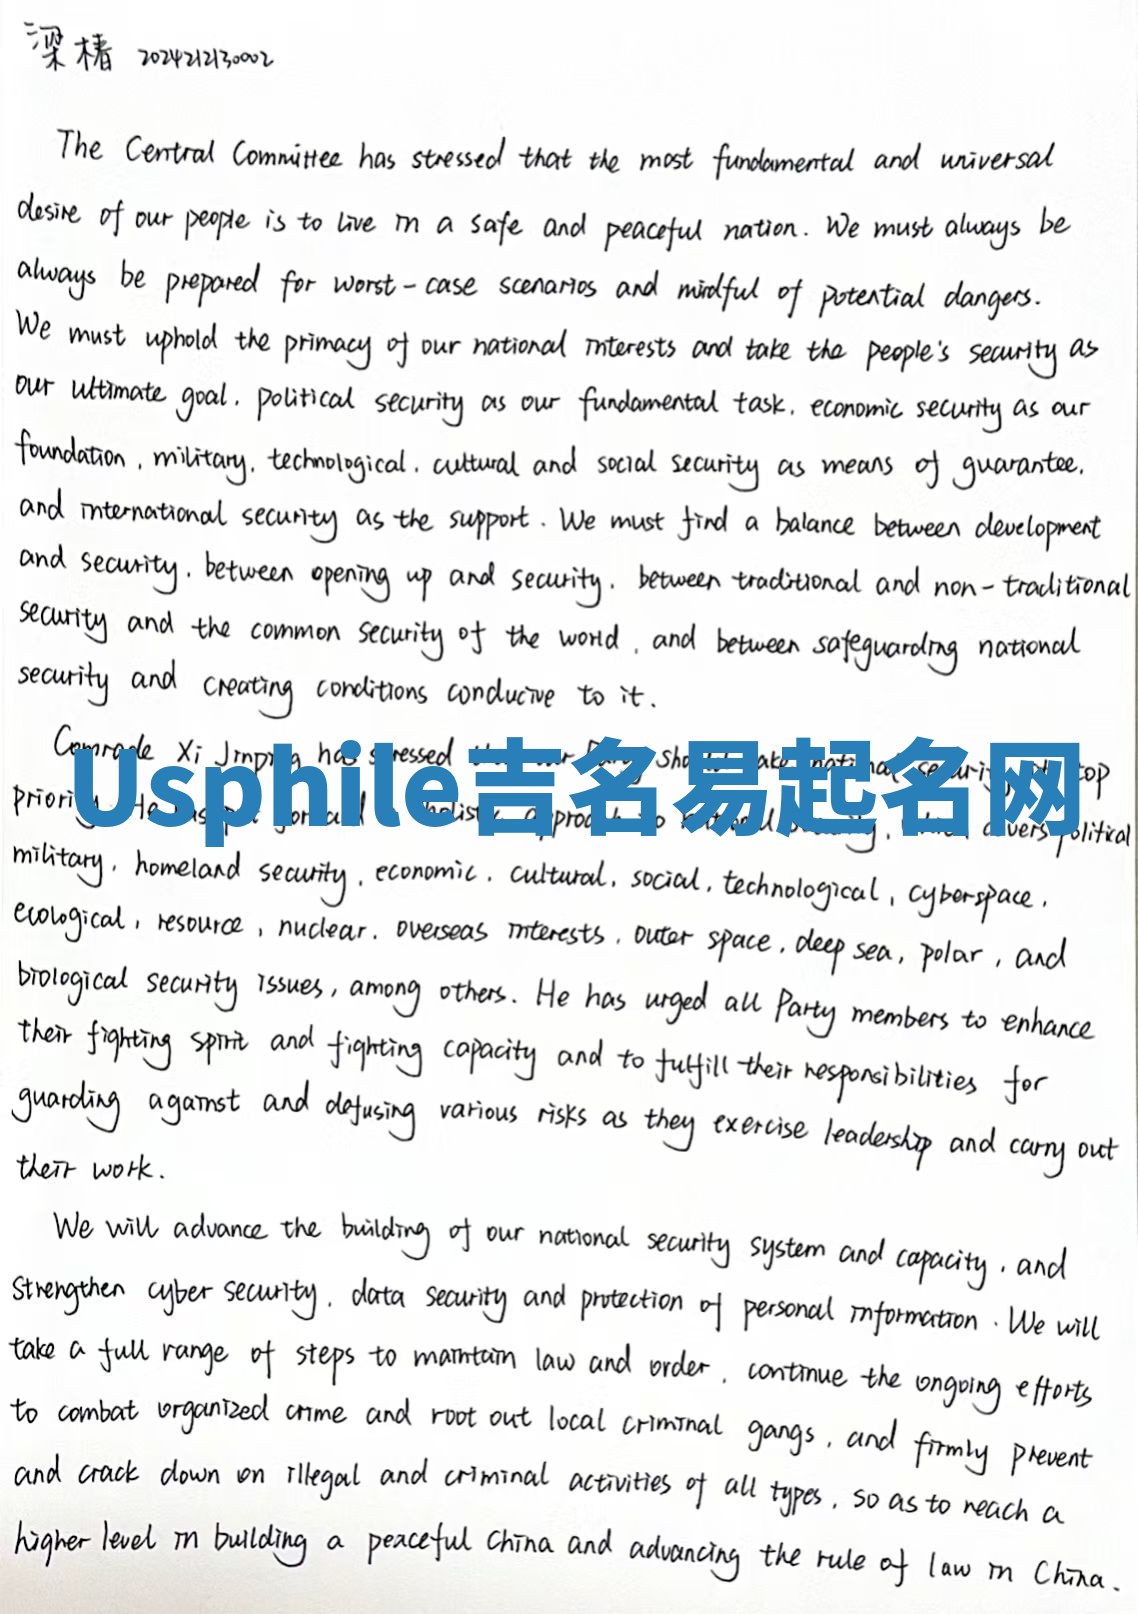 梁椿 2024212130002
The Central Committee has stressed that the most fundamental and universal
desire of our people is to live in a safe and peaceful nation. We must always be
always be prepared for worst-case scenarios and mindful of potential dangers.
We must uphold the primacy of our national interests and take the people's security as
our ultimate goal, political security as our fundamental task, economic security as our
foundation, military, technological, cultural and social security as means of guarantee,
and international security as the support. We must find a balance between development
and security, between opening up and security, between traditional and non-traditional
security and the common security of the world, and between safeguarding national
security and creating conditions conducive to it.
Comrade Xi Jinping has stressed security top
Usphile吉名易起名网
priority He approach political
military, homeland security, economic, cultural, social, technological, cyberspace,
ecological, resource, nuclear, overseas interests, outer space, deep sea, polar, and
biological security issues, among others. He has urged all Party members to enhance
their fighting spirit and fighting capacity and to fulfill their responsibilities for
guarding against and defusing various risks as they exercise leadership and carry out
their work.
We will advance the building of our national security system and capacity, and
strengthen cyber security, data security and protection of personal information. We will
take a full range of steps to maintain law and order, continue the ongoing efforts
to combat organized crime and root out local criminal gangs, and firmly prevent
and crack down on illegal and criminal activities of all types, so as to reach a
higher level in building a peaceful China and advancing the rule of law in China.